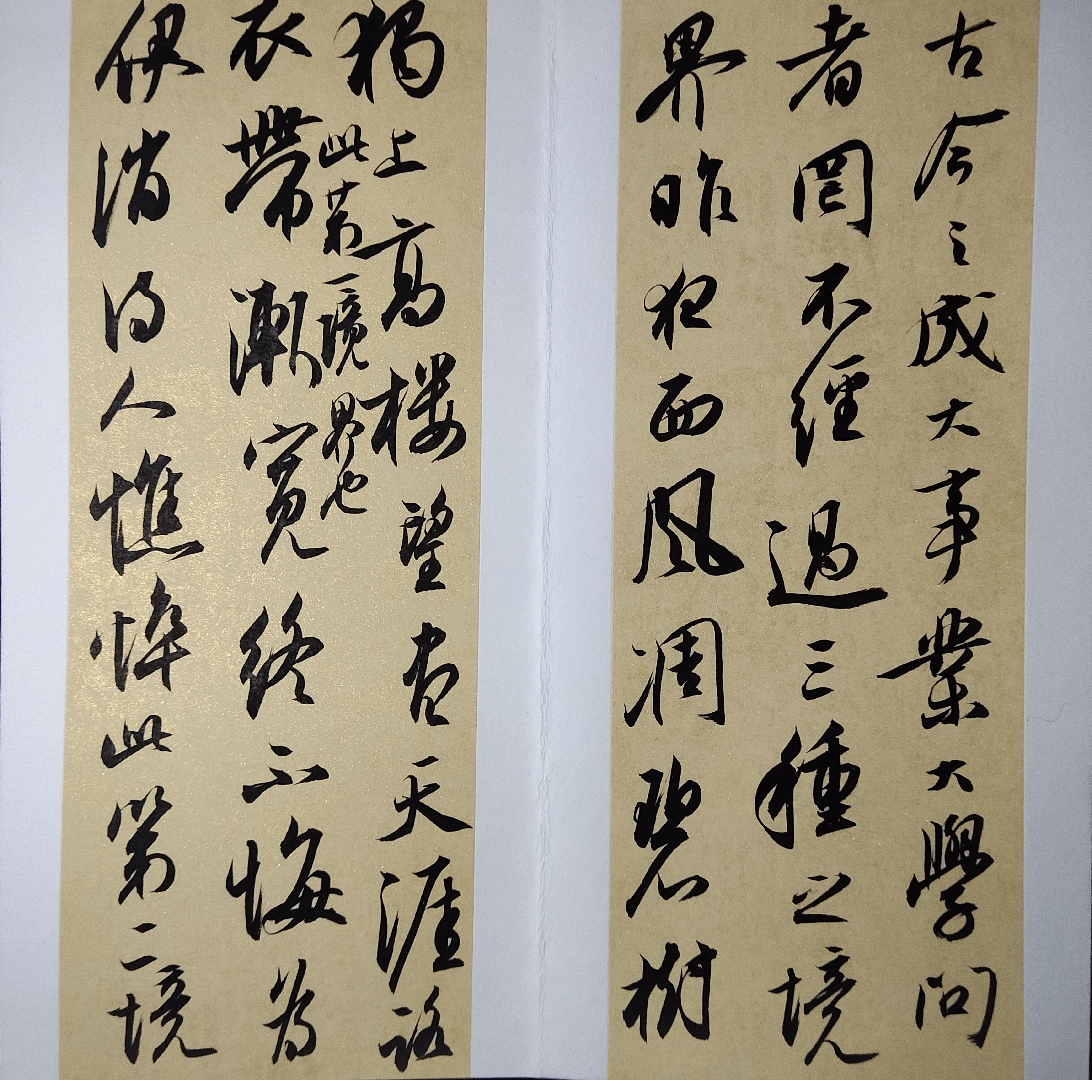 古今之成大事業大學問
者罔不經過三種之境
界昨夜西風凋碧樹
獨上高樓望盡天涯路
此第一境界也
衣帶漸寬終不悔為
伊消得人憔悴此第二境